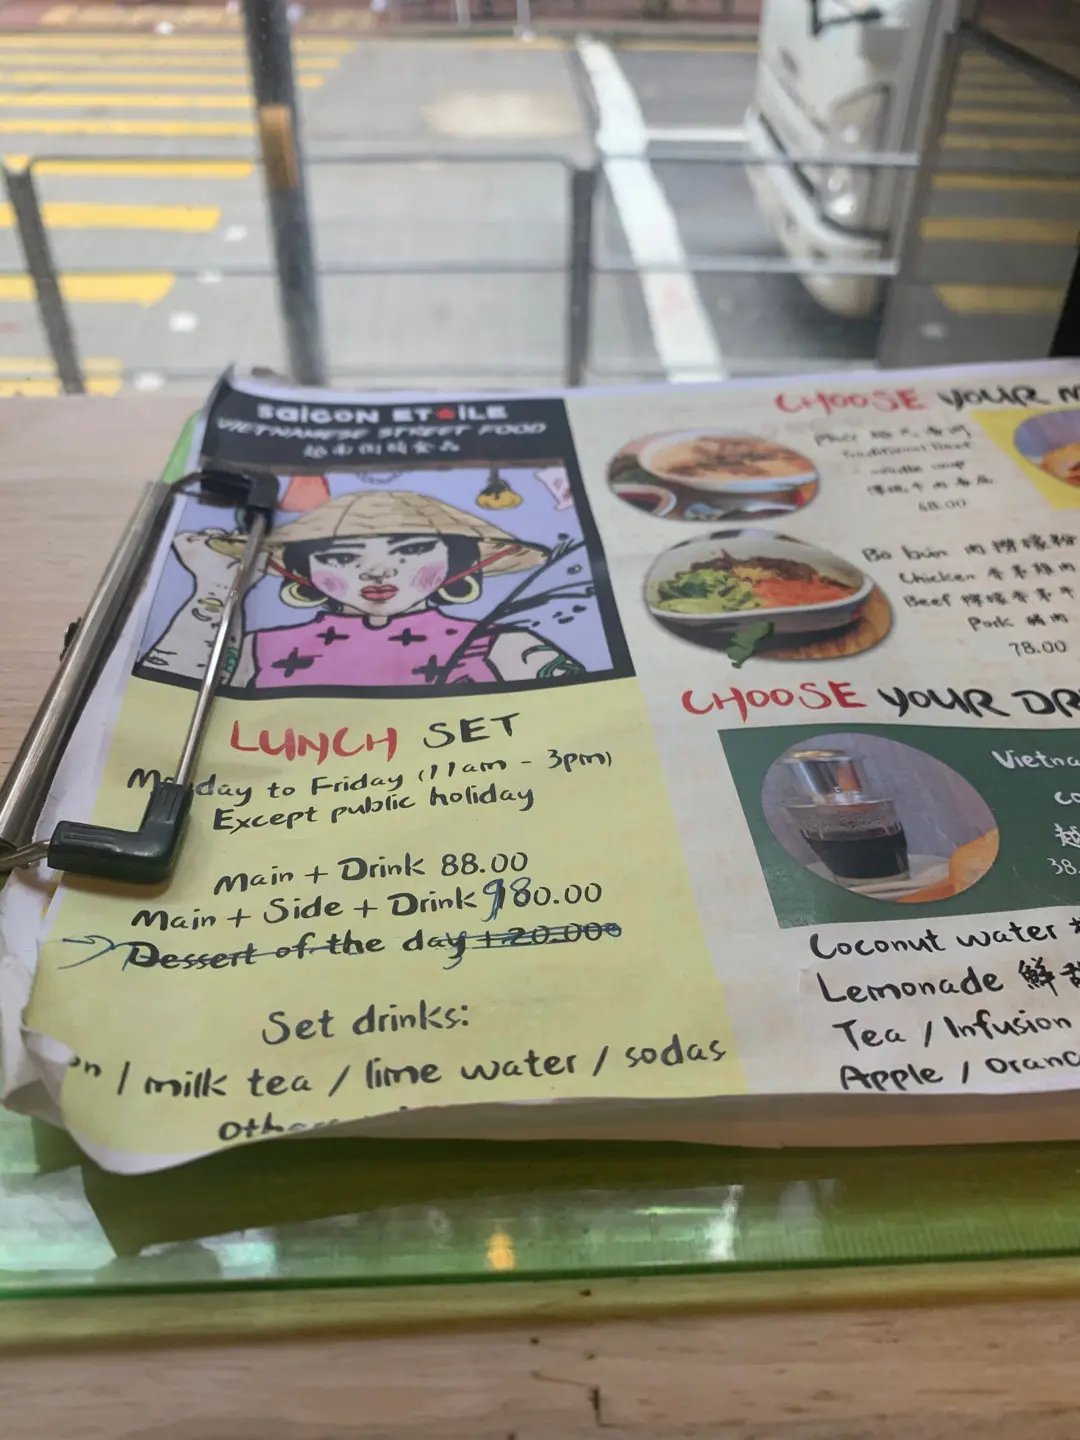 SAIGON ETOILE
VIETNAMESE STREET FOOD
LUNCH SET
Monday to Friday (11am - 3pm)
Except public holiday
Main + Drink 88.00
Main + Side + Drink 980.00
Dessert of the day + 20.00
Set drinks:
/ milk tea / lime water / sodas
CHOOSE YOUR
Traditional Beef
noodle soup
68.00
Bo bun
Chicken
Beef
Pork
78.00
CHOOSE YOUR
38.
Coconut water
Lemonade 鮮
Tea / Infusion
Apple /